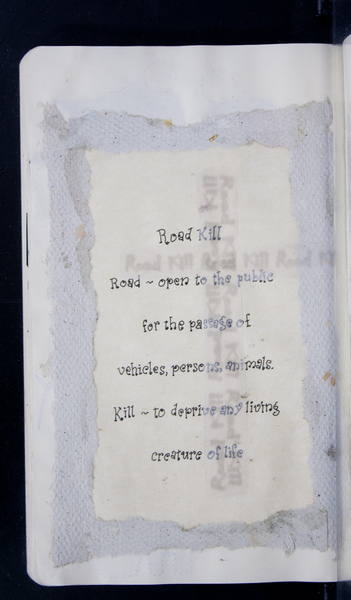 Road Kill
Road ~ open to the public
for the passage of
vehicles, persons, animals.
Kill ~ to deprive any living
creature of life
Road Kill Road Kill Road Kill